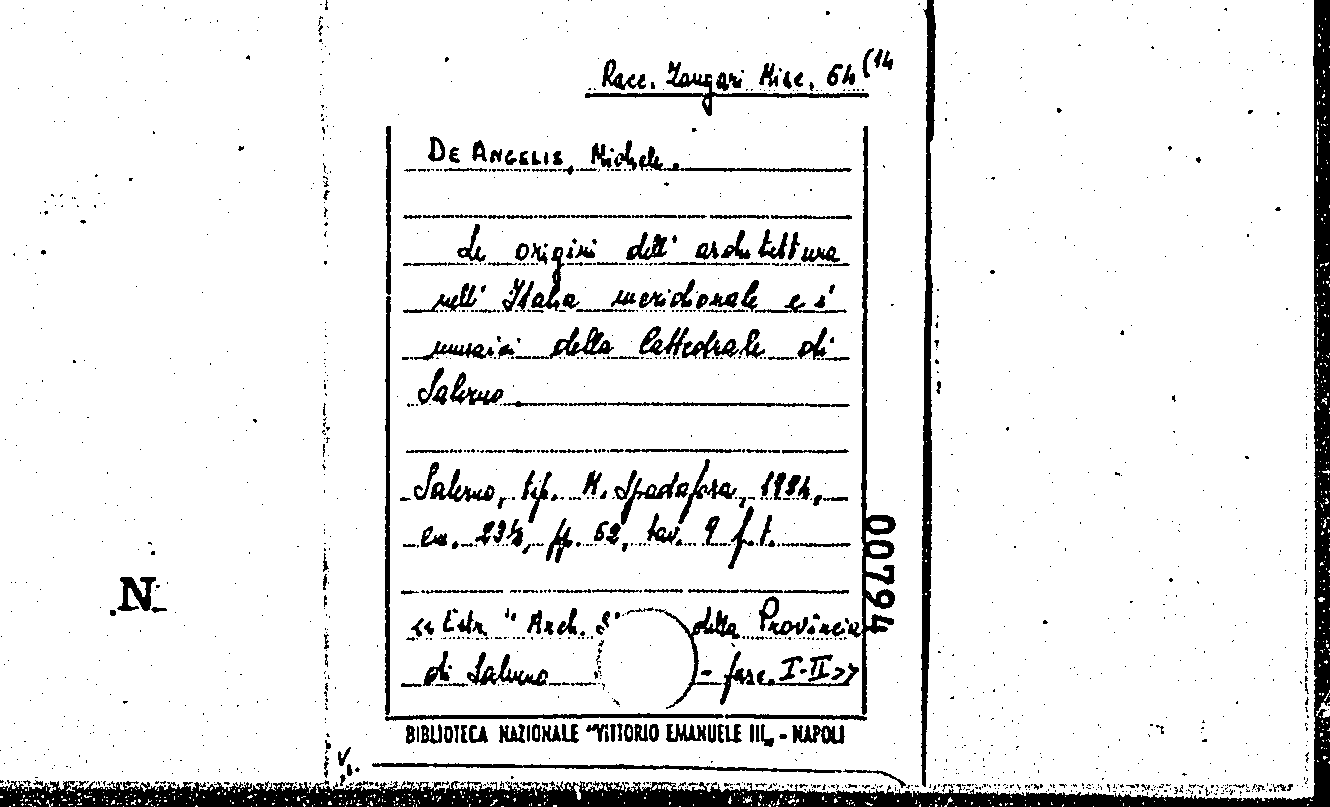 Racc. Zangari Misc. 64 (14
DE ANGELIS, Michele.
Le origini dell' architettura
nell' Italia meridionale e i
musaici della Cattedrale di
Salerno.
Salerno, tip. M. Spadafora, 1924,
cm. 23½, pp. 62, tav. 9 f.t.
00794
N
<< Estr. " Arch. della Provincia
di Salerno - fasc. I-II >>
BIBLIOTECA NAZIONALE "VITTORIO EMANUELE III„ - NAPOLI